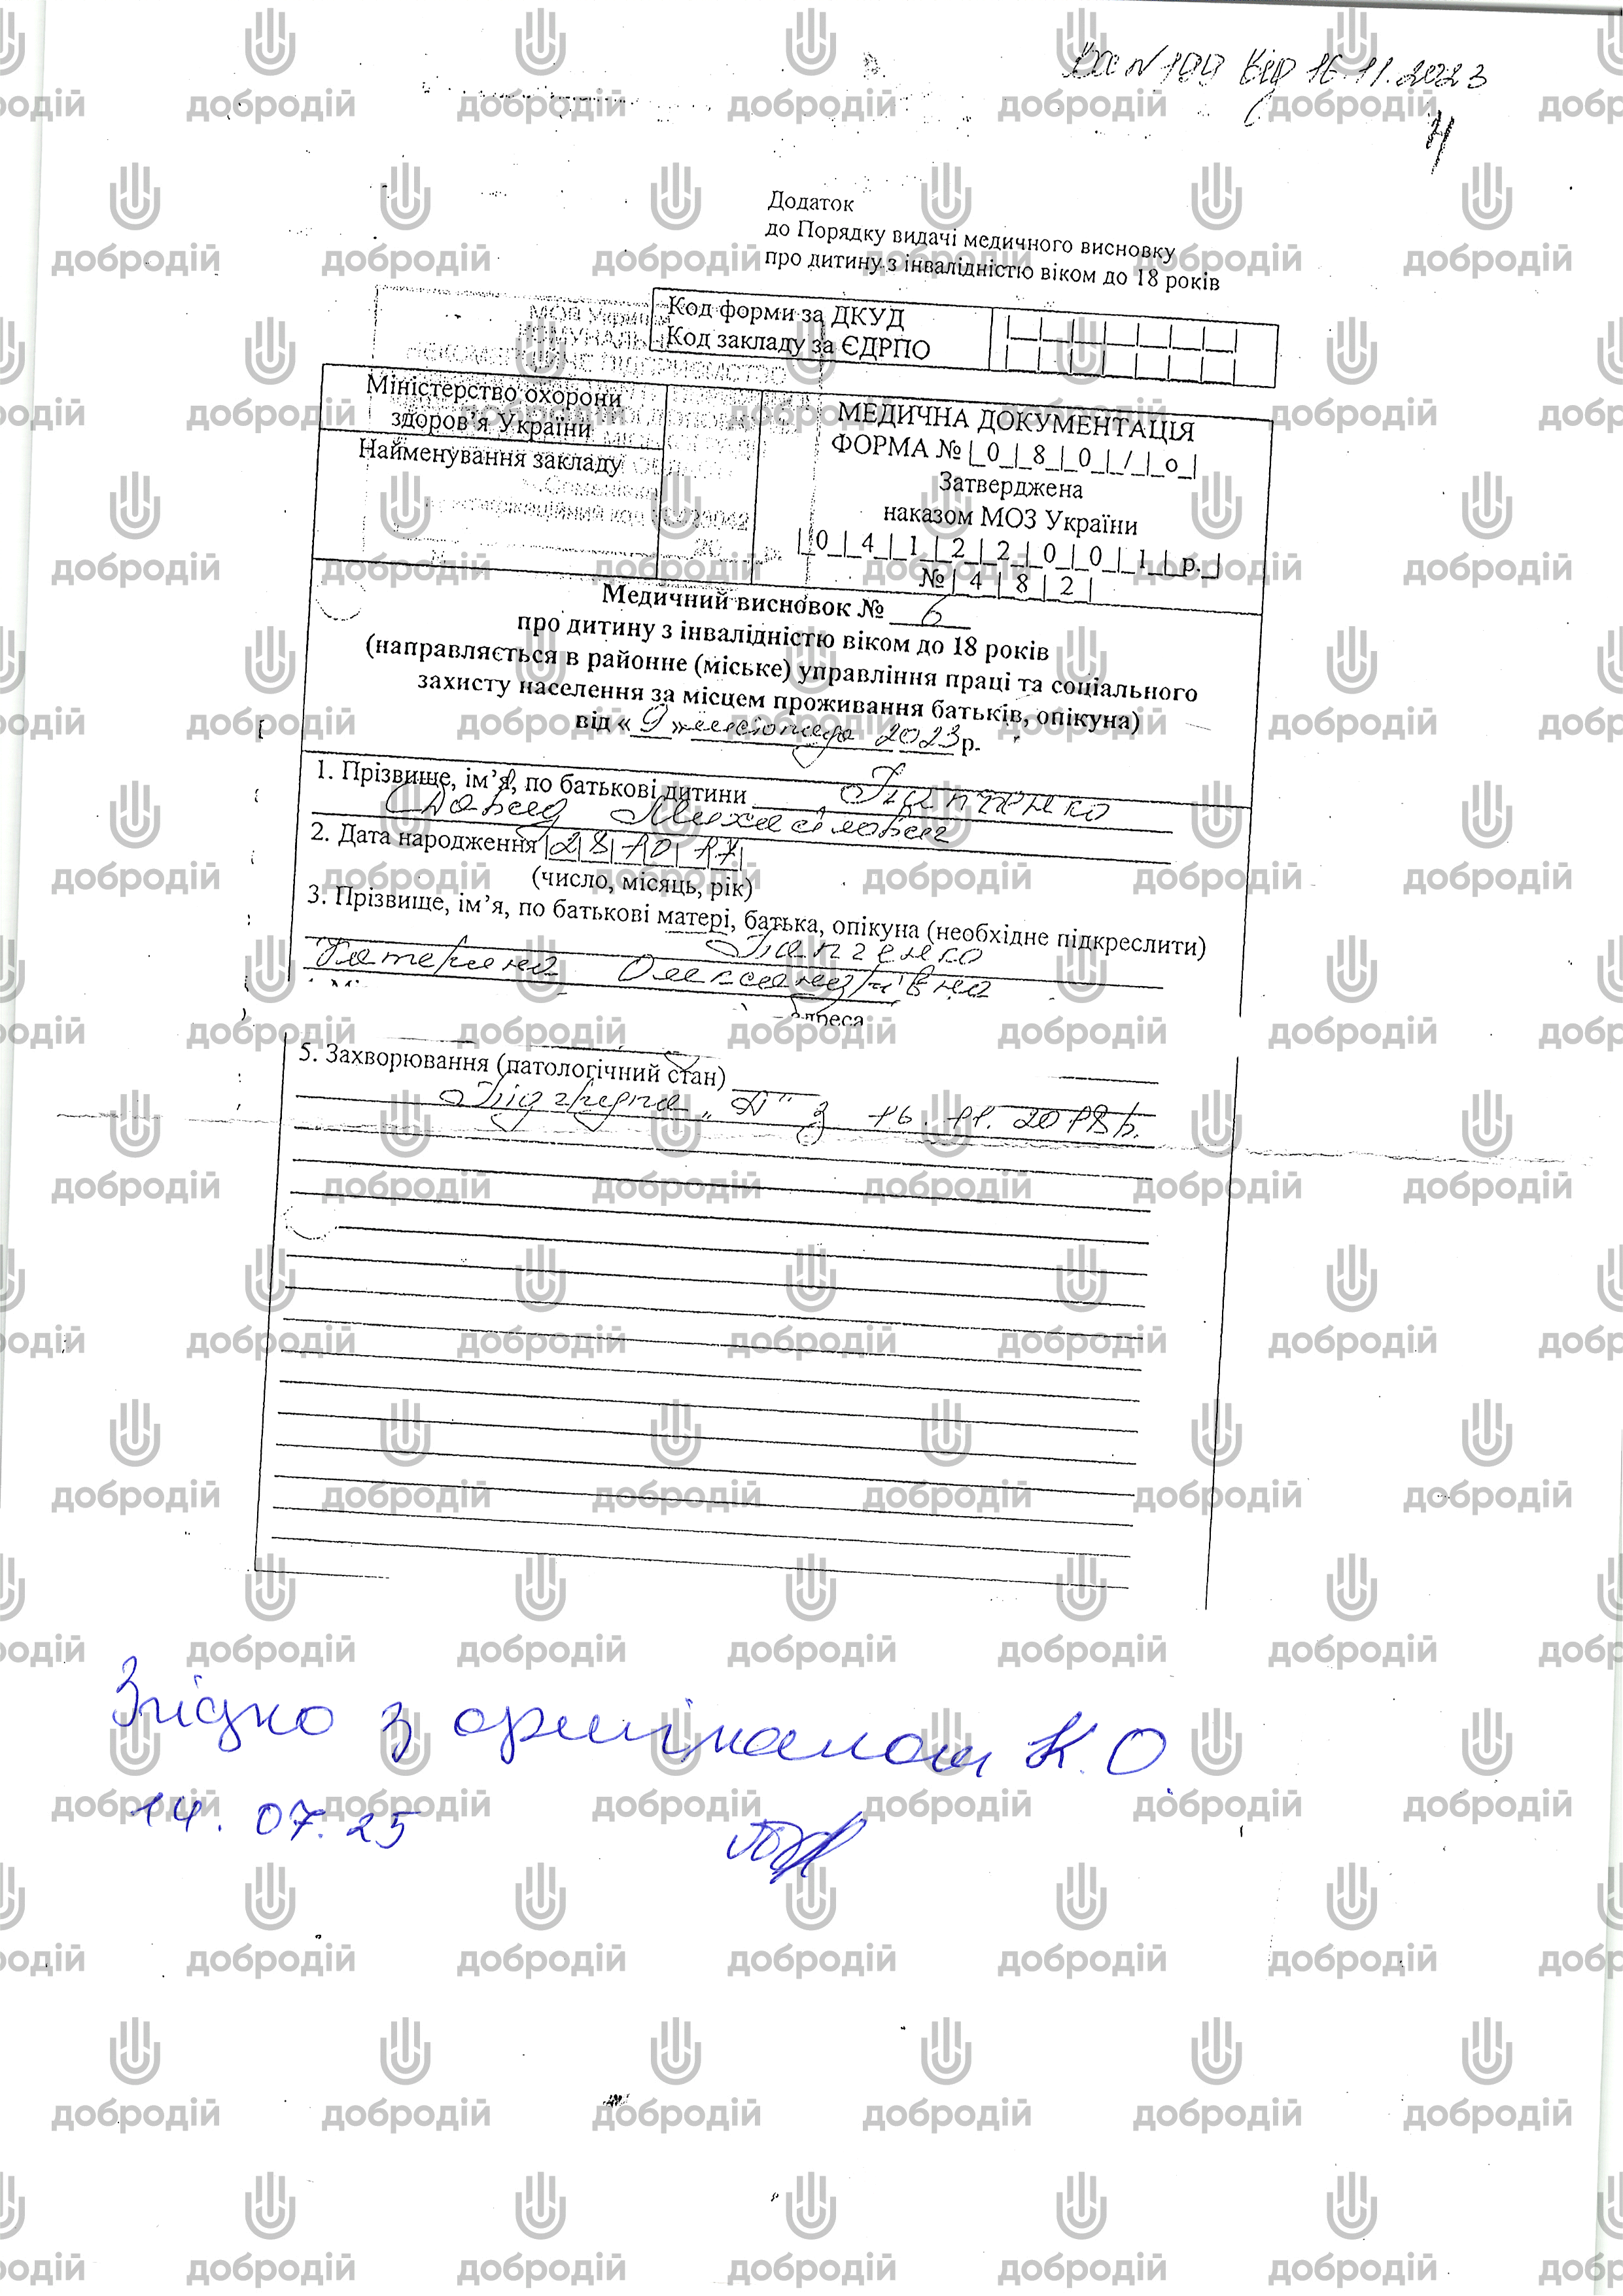 Вх № 100 від 16.11.2023
Додаток
до Порядку видачі медичного висновку
про дитину з інвалідністю віком до 18 років
Код форми за ДКУД
Код закладу за ЄДРПО
МОЗ України
НЕКОМЕРЦІЙНЕ ПІДПРИЄМСТВО
Міністерство охорони
здоров’я України
Найменування закладу
МЕДИЧНА ДОКУМЕНТАЦІЯ
ФОРМА № |_0_|_8_|_0_|_/_|_о_|
Затверджена
наказом МОЗ України
|_0_|_4_|_1_|_2_|_2_|_0_|_0_|_1_|_р._|
№ |_4_|_8_|_2_|
Медичний висновок № 6
про дитину з інвалідністю віком до 18 років
(направляється в районне (міське) управління праці та соціального
захисту населення за місцем проживання батьків, опікуна)
від « 9 » листопада 2023 р.
1. Прізвище, ім’я, по батькові дитини
Давид Михайлович
2. Дата народження |2|8|10|17|
(число, місяць, рік)
3. Прізвище, ім’я, по батькові матері, батька, опікуна (необхідне підкреслити)
Катерина Олександрівна
адреса
5. Захворювання (патологічний стан)
Підгрупа „А" з 16.11.2018р.
Згідно з оригіналом К.О.
14.07.25
добродій